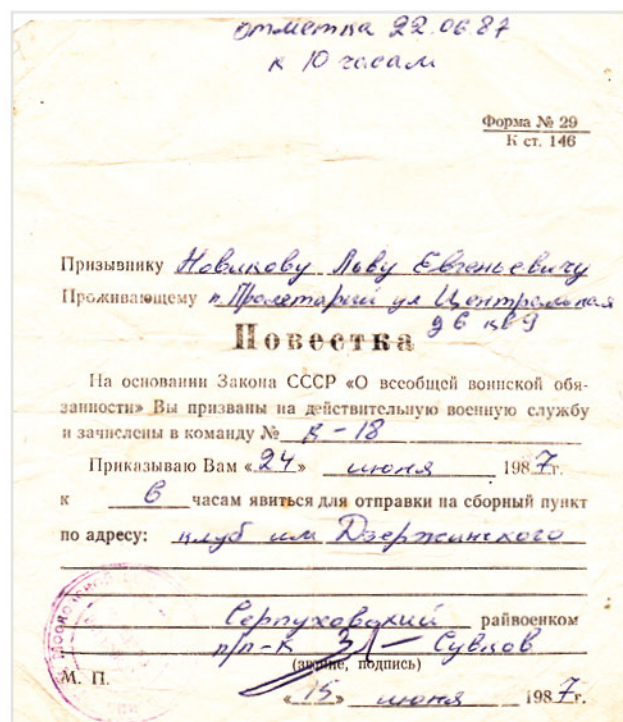 отметка 22.06.87
к 10 часам
Форма № 29
К ст. 146
Призывнику Новикову Льву Евгеньевичу
Проживающему п. Пролетарий ул Центральная
д 6 кв 9
Повестка
На основании Закона СССР «О всеобщей воинской обя-
занности» Вы призваны на действительную военную службу
и зачислены в команду № В-18
Приказываю Вам «24» июня 1987г.
к 6 часам явиться для отправки на сборный пункт
по адресу: клуб им Дзержинского
Серпуховский райвоенком
п/п-к Сувков
(звание, подпись)
М. П.
«15» июня 1987г.